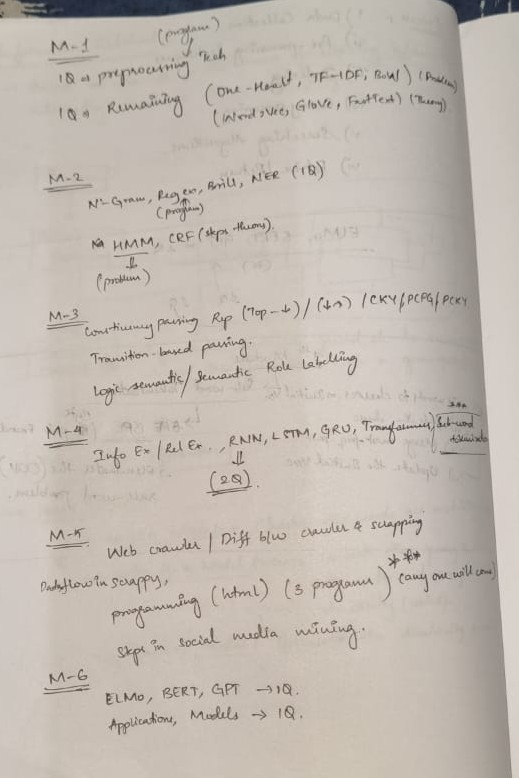 M-1
(program)
1Q → preprocessing Tech
1Q → Remaining (One-Heart, TF-IDF, BoW) (Problem)
(Word2Vec, GloVe, FastText) (Theory)
M-2
N-Gram, Regex, Brill, NER (1Q)
(program)
HMM, CRF (steps-theory).
(problem)
M-3
Constituency parsing Rep (Top-↓) / (↓→) / CKY / PCFG / PCKY
Transition-based parsing.
Logic semantic / Semantic Role Labelling
M-4
Info Ex / Rel Ex., RNN, LSTM, GRU, Transformer, Sub-word
***
(2Q).
M-5
Web crawler / Diff b/w crawler & scrapping
Dataflow in scrappy,
programming (html) (3 programs) *** (any one will come)
Steps in social media mining.
M-6
ELMO, BERT, GPT → 1Q.
Applications, Models → 1Q.